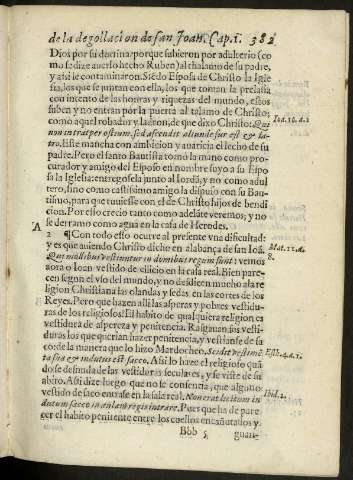 de la degollacion de san Joan. Cap. 1. 382
Dios por su doctrina: porque subieron por adulterio (co
mo se dize auerlo hecho Ruben) al thalamo de su padre,
y assi le contaminaron. Siēdo Esposa de Christo la Igle
sia, los que se juntan con ella, los que toman la prelasia
con intento de las honras y riquezas del mundo, estos
suben y no entran por la puerta al talamo de Christo:
como aquel robador y ladron, de que dixo Christo: Qui
non intrat per ostium, sed ascendit aliunde fur est & la-
tro. Este mancha con ambicion y auaricia el lecho de su
padre. Pero el santo Bautista tomò la mano como pro-
curador y amigo del Esposo en nombre suyo a su Espo
sa la Iglesia: entregosela junto al Iordã, y no como adul
tero, sino como castissimo amigo la dispuso con su Bau
tismo, para que tuuiesse con el de Christo hijos de bendi
cion. Por esso crecio tanto como adelãte veremos; y no
se derramo como agua en la casa de Herodes.
2 ¶Con todo esso ocurre al presente vna dificultad:
y es que auiendo Christo dicho en alabança de san Ioã.
Qui mollibus vestiuntur in domibus regum sunt: vemos
aora a Ioan vestido de cilicio en la casa real. Bien pare-
cen segun el vso del mundo, y no desdizen mucho a la re
ligion Christiana las olandas y sedas en las cortes de los
Reyes. Pero que hazen alli las asperas y pobres vestidu-
ras de los religiosos? El habito de qualquiera religion es
vestidura de aspereza y penitencia. Rasgauan sus vesti-
duras los que querian hazer penitencia, y vestianse de sa
co: de la manera que lo hizo Mardocheo. Scidit vestimē
ta sua & indutus est sacco. Assi lo haze el religioso quā
do se desnuda de las vestiduras seculares, y se viste de su
abito. Assi dize luego que no se consentia, que alguno
vestido de saco entrasse en la sala real. Non erat licitum in
dutum sacco in aulam regis intrare. Pues que ha de pare-
cer el habito penitente entre los cuellos encañutados y
Bbb 5 guar-
Ioã. 10. a. 1
A
Mat. 11. a.
8.
Esth. 4. a. 1.
Ibid. 2.